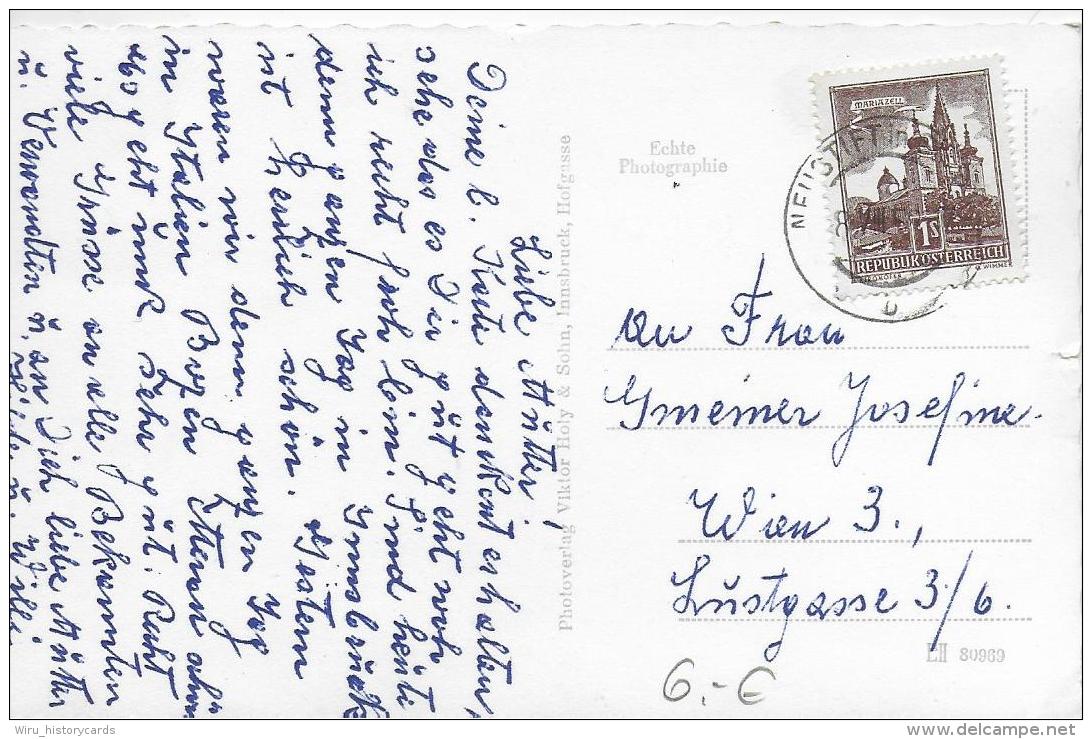 Liebe Mutter!
Deine l. Karte dankent erhalten,
sehe das es Dir gut geht noch
ich recht froh bin. Sind heute
den ganzen Tag in Innsbruck
ist herrlich schön. Gestern
waren wir den ganzen Tag
im Italien Bozen Meran
geht uns sehr gut. Recht
viele Grüsse an alle Bekannten
u. Verwandten u. an Dich liebe Mutter
u. Willi
Photoverlag Viktor Holy & Sohn, Innsbruck, Hofgasse
Echte
Photographie
MARIAZELL
1S
REPUBLIK ÖSTERREICH
WIMMER
NEUSTIFT
b
an Frau
Gmeiner Josefine.
Wien 3.,
Lustgasse 3/6.
LII 80969
6.- €
Wiru_historycards
www.delcampe.net